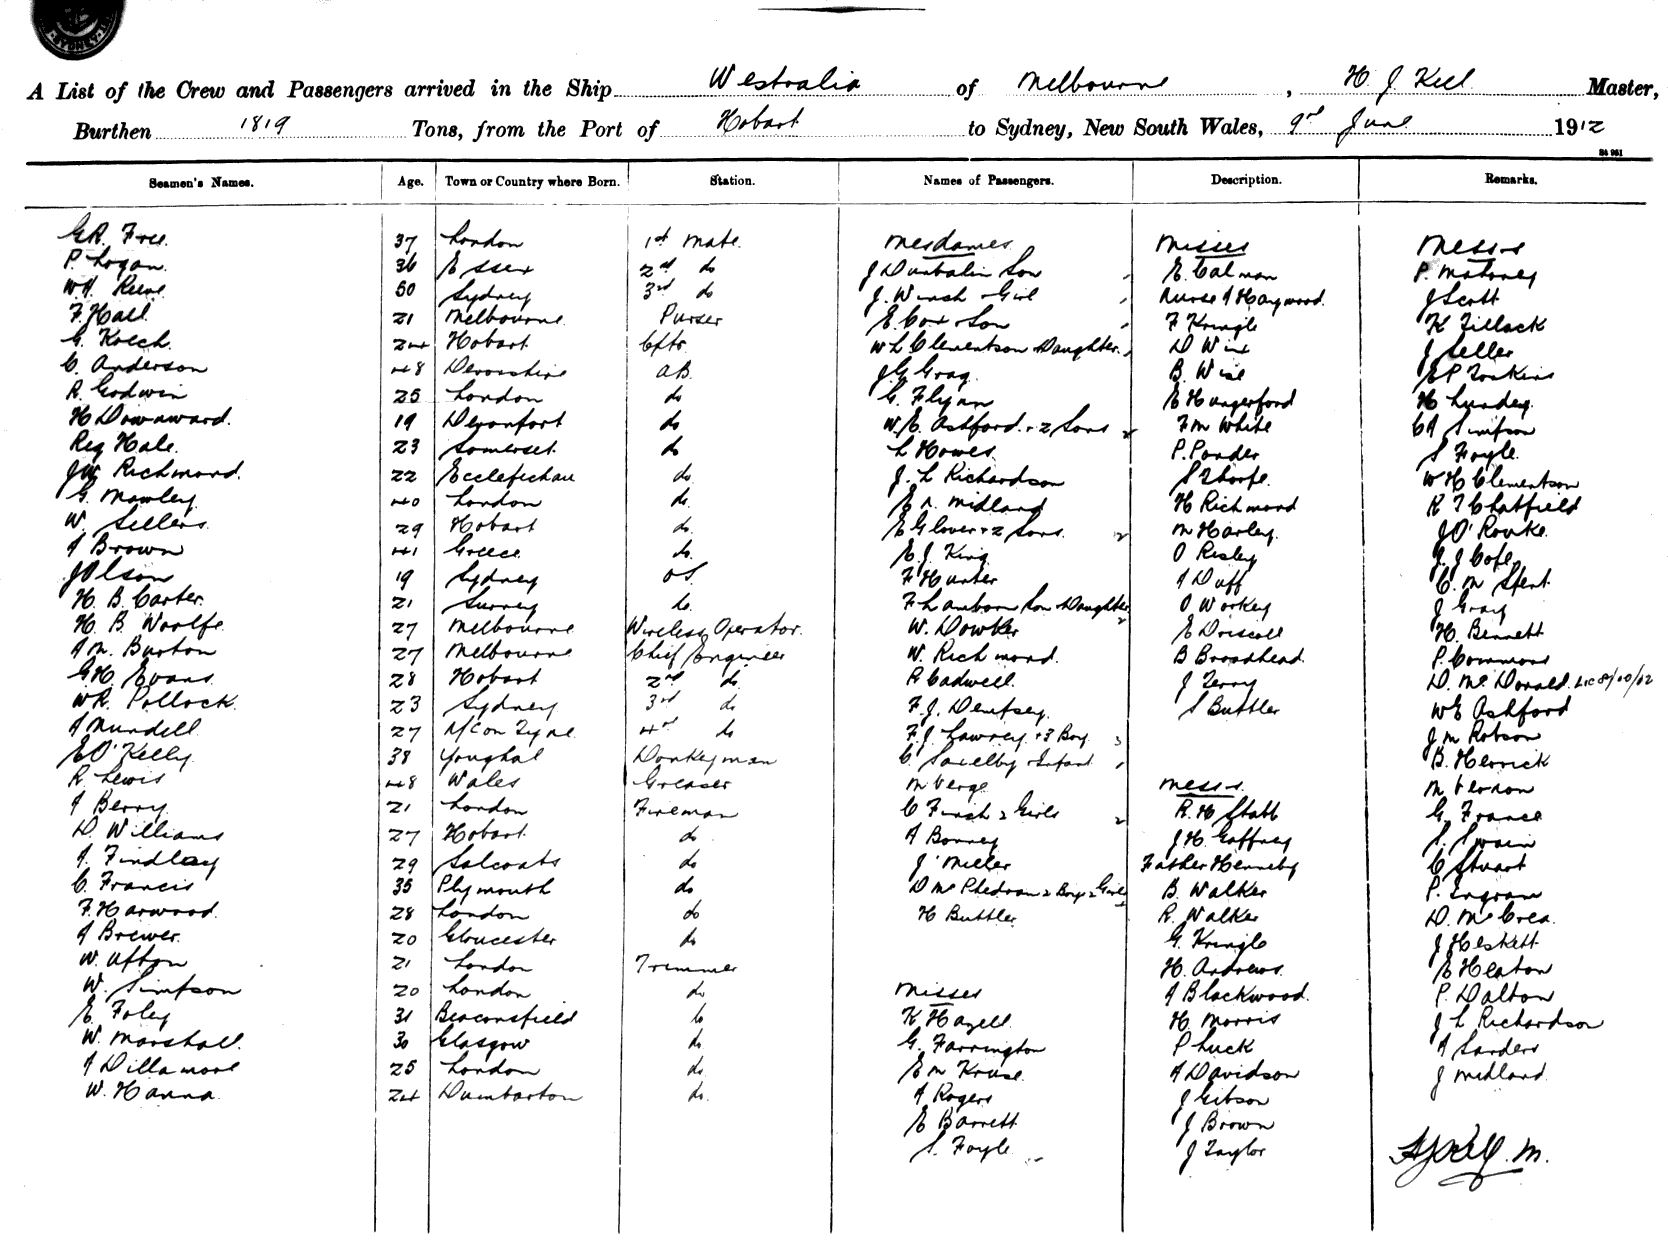 SYDNEY
A List of the Crew and Passengers arrived in the Ship Westralia of Melbourne, H J Kell Master,
Burthen 1819 Tons, from the Port of Hobart to Sydney, New South Wales, 9th June 1912
Seamen's Names. Age. Town or Country where Born. Station. Names of Passengers. Description. Remarks.
G.R. Free 37 London 1st Mate Mesdames Misses Messrs
P. Logan 36 Essex 2nd do J Dunbabin Son E. Calman P. Mahoney
W.H. Reeve 50 Sydney 3rd do J. Winch & Girl Nurse A Haywood J Scott
F. Hall 21 Melbourne Purser E. Cox & Son F Kringle K Zillack
G. Koech 24 Hobart Cptr W L Clementson Daughter D Wise J Seller
C. Anderson 48 Devonshire AB J G Gray B. Wise
R. Godwin 25 London do G. Flynn E Hungerford H Lundey
H Downward 19 Devonport do W. E. Ashford & 2 Sons F M White C A Simpson
Reg Hale 23 Somerset do L Howes P. Ponder S Foyle
J W Richmond 22 Ecclefechan do J. L Richardson S Thorpe W H Clementson
G. Mowley 40 London do E. A. Midland H Richmond R T Chatfield
W. Sellers 29 Hobart do E Glover & 2 Sons M Harley J O'Rourke
A Brown 41 Greece do E. J. King O Risley G. J Cope
J Olson 19 Sydney OS F Hunter A Duff C. M Spent
H. B. Carter 21 Surrey do F Lanborn Son Daughter O Workey J Gray
H. B. Woolfe 27 Melbourne Wireless Operator W. Dowker E Driscoll H. Bennett
A M. Burton 27 Melbourne Chief Engineer W. Richmond B Broadhead P. Commons
G H. Evans 28 Hobart 2nd do R Cadwell J Terry D. McDonald
W R. Pollock 23 Sydney 3rd do F. J. Dempsey S Buttler W E Ashford
A Mundell 27 N/C on Tyne 4th do F. J. Lawrey & 3 Boys J M Robson
E O'Kelly 38 Youghal Donkeyman C Saxelby & Infant B. Herrick
R. Lewis 48 Wales Greaser M Verge Messrs M Vernon
A Berry 21 London Fireman C Finch 2 Girls R. H Stabb G. France
D. Williams 27 Hobart do A Bonney J. H. Gaffney S. Swain
A. Findlay 29 Salcoats do J Miller Father Henneby C Stuart
C. Francis 35 Plymouth do D McPhedran 2 Boys 2 Girls B. Walker P. Ingram
F. Harwood 28 London do H Buttler R. Walker D. McCrea
A Brewer 20 Gloucester do G. Kringle J Heskett
W. Upton 21 London Trimmer H. Andrews E Heaton
W. Simpson 20 London do Misses A Blackwood P. Dalton
E. Foley 31 Beaconsfield do K Hazell H. Morris J L Richardson
W. Marshall 30 Glasgow do G. Farrington P Luck A Sanders
A Dillamore 25 London do E M Kruse A Davidson J Midland
W. Hanna 24 Dumbarton do A Rogers J Gibson
E Barrett J Brown
S. Foyle J Taylor